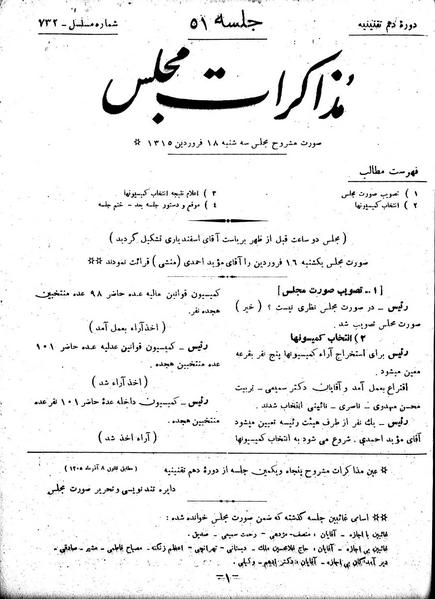 دورهٔ دهم تقنینیه
جلسه ۵۱
شماره مسلسل - ۷۳۲
مذاکرات مجلس
صورت مشروح مجلس سه شنبه ۱۸ فروردین ۱۳۱۵ *
فهرست مطالب
۱ ) تصویب صورت مجلس
۲ ) انتخاب کمیسیونها
۳ ) اعلام نتیجه انتخاب کمیسیونها
۴ ) موقع و دستور جلسه بعد - ختم جلسه
( مجلس دو ساعت قبل از ظهر بریاست آقای اسفندیاری تشکیل گردید )
صورت مجلس یکشنبه ۱۶ فروردین را آقای مؤید احمدی (منشی) قرائت نمودند **
[ ۱ - تصویب صورت مجلس ]
رئیس - در صورت مجلس نظری نیست ؟ ( خیر )
صورت مجلس تصویب شد .
۲ ) انتخاب کمیسونها
رئیس برای استخراج آراء کمیسیونها پنج نفر بقرعه
معین میشود .
اقتراع بعمل آمد و آقایان دکتر سمیعی - تربیت
محسن مهدوی - ناصری - نائینی انتخاب شدند .
رئیس - یك نفر از طرف هیئت رئیسه تعیین میشود
آقای مؤید احمدی . شروع می شود به انتخاب کمیسیونها
کمیسیون قوانین مالیه عده حاضر ۹۸ عده منتخبین
هجده نفر.
( اخذ آراء بعمل آمد )
رئیس - کمیسیون قوانین عدلیه عده حاضر ۱۰۱
عده منتخبین هجده .
( اخذ آراء شد )
رئیس - کمیسیون داخله عدهٔ حاضر ۱۰۱ نفر عده
منتخبین هجده.
( آراء اخذ شد )
* عین مذاکرات مشروح پنجاه و یکمین جلسه از دورهٔ دهم تقنینیه (مطابق قانون ۸ آذرماه ۱۳۰۵)
دایره تند نویسی و تحریر صورت مجلس
** اسامی غائبین جلسه گذشته که ضمن صورت مجلس خوانده شده :
غائبین با اجازه - آقایان ، منصف - مژدهی - رحمت سمیعی - صدیق .
غائبین بی اجازه - آقایان ، حاج غلامحسین ملك - دبستانی - تهرانچی - اعظم زنگنه - مصباح فاطمی - مشیر - صادقی -
دیر آمدگان بی اجازه - آقایان ، دکتر ادهم - وکیلی .
-۱-